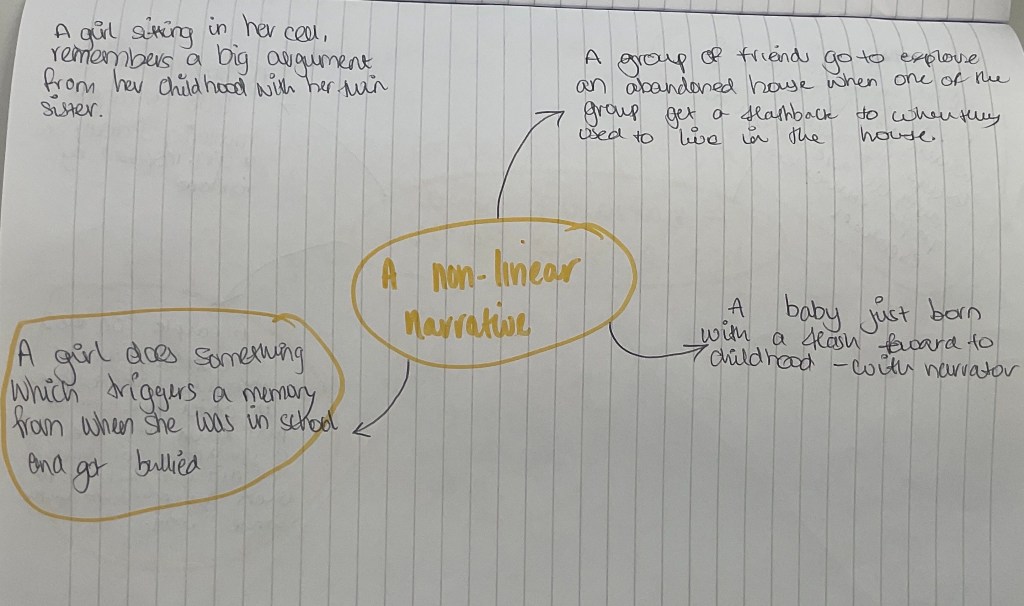 A girl sitting in her cell,
remembers a big argument
from her childhood with her twin
sister.
A group of friend go to explore
an abandoned house when one of the
group get a flashback to when they
used to live in the house.
A non-linear
narrative
A baby just born
with a flash foward to
childhood - with narrator
A girl does something
which triggers a memory
from when she was in school
and got bullied